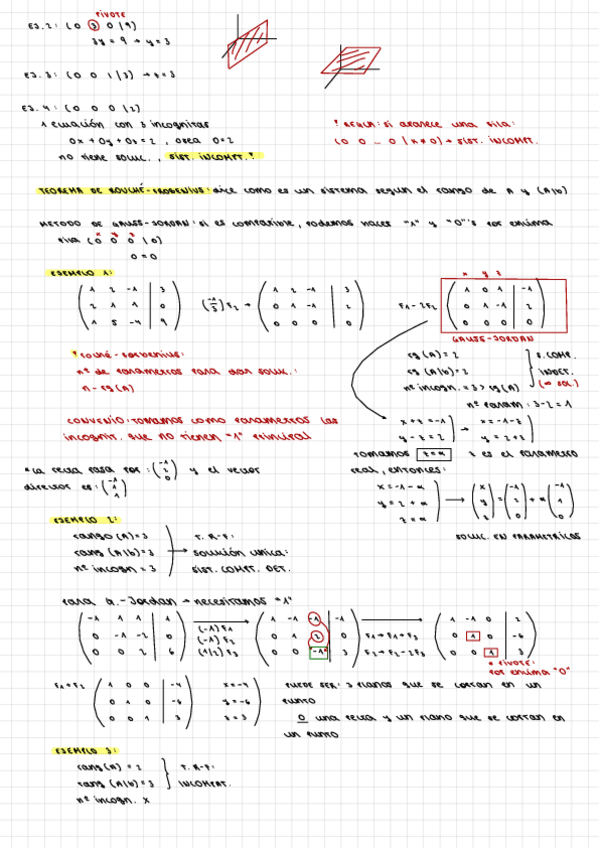 PIVOTE
EJ. 2: (0 3 0 | 9)
3y = 9 → y = 3
EJ. 3: (0 0 1 | 3) → z = 3
EJ. 4: (0 0 0 | 2)
1 ecuación con 3 incognitas
0x + 0y + 0z = 2, osea 0=2
no tiene soluc., SIST. INCOMPT.!
! REGLA: si aparece una fila:
(0 0 ... 0 | k≠0) → SIST. INCOMPT.
TEOREMA DE ROUCHÉ-FROBENIUS: dice como es un sistema segun el rango de A y (A|b)
METODO DE GAUSS-JORDAN: si es compatible, podemos hacer "1" y "0"'s por encima
fila (0 0 0 | 0)
x y z
0 = 0
EJEMPLO 1:
1 2 -1 | 3
2 1 1 | 0
1 5 -4 | 9
(-1/3) F2 →
1 2 -1 | 3
0 1 -1 | 2
0 0 0 | 0
F1 - 2F2
x y z
1 0 1 | -1
0 1 -1 | 2
0 0 0 | 0
GAUSS-JORDAN
! Rouché-Frobenius:
nº de parametros para dar soluc.:
n - rg(A)
rg (A) = 2
rg (A|b) = 2
nº incogn. = 3 > rg(A)
S. COMP.
INDET.
(∞ sol.)
nº param: 3-2 = 1
CONVENIO: TOMAMOS COMO PARAMETROS las
incognit. que no tienen "1" principal
x + z = -1
y - z = 2
→
x = -1 - z
y = 2 + z
Tomamos z = α z es el parametro
real, entonces:
*La recta pasa por: (-1 2 0) y el vector
director es: (-1 1 1)
x = -1 - α
y = 2 + α
z = α
→ (x y z) = (-1 2 0) + α (-1 1 1)
soluc. en parametricas
EJEMPLO 2:
rango (A) = 3
rang (A|b) = 3
nº incogn = 3
T. R-F:
solución unica:
SIST. COMPT. DET.
Para G.-Jordan → necesitamos "1"
-1 1 1 | 1
0 -1 -2 | 0
0 0 2 | 6
(-1) F1
(-1) F2
(1/2) F3
1 -1 -1 | -1
0 1 2 | 0
0 0 1 | 3
F1 → F1 + F3
F2 → F2 - 2F3
1 -1 0 | 2
0 1 0 | -6
0 0 1 | 3
* PIVOTE:
por encima "0"
F1 + F2
1 0 0 | -4
0 1 0 | -6
0 0 1 | 3
x = -4
y = -6
z = 3
PUEDE SER: 3 planos que se cortan en un
punto
o una recta y un plano que se cortan en
un punto
EJEMPLO 3:
rang (A) = 2
rang (A|b) = 3
nº incogn. x
T. R-F:
INCOMPAT.